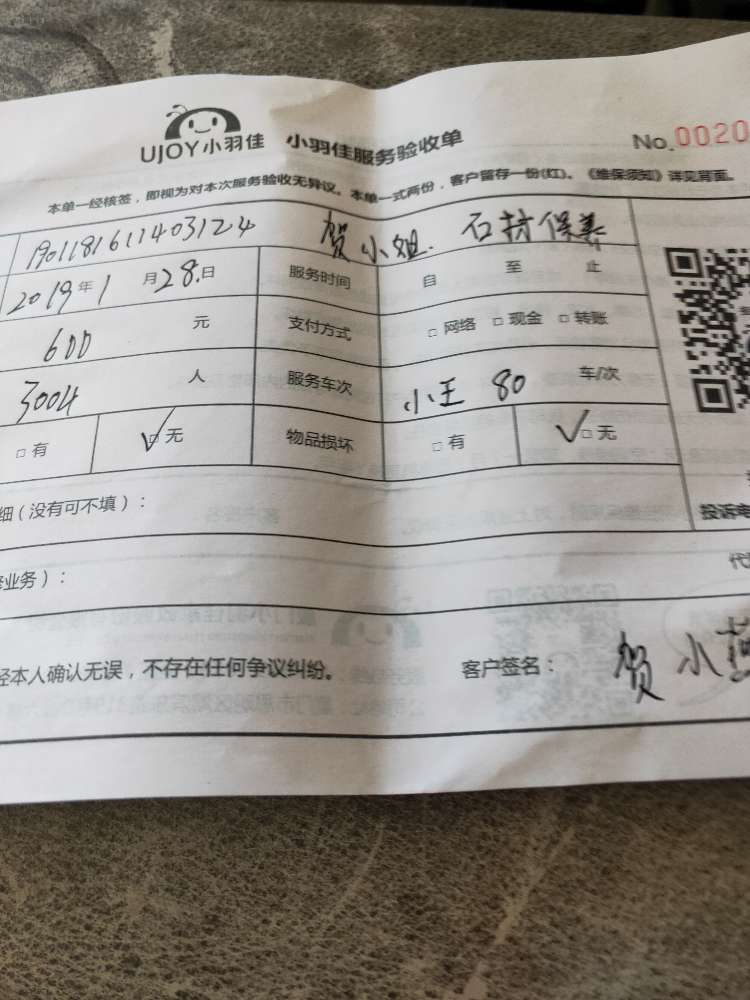 UJOY小羽佳 小羽佳服务验收单 No.0020
本单一经核签，即视为对本次服务验收无异议。本单一式两份，客户留存一份(红)。《维保须知》详见背面。
1901181611403124 贺小姐. 石材保养
2019年1月28.日 服务时间 自 至 止
600 元 支付方式 □ 网络 □ 现金 □ 转账
3004 人 服务车次 小王 80 车/次
□ 有 ☑ 无 物品损坏 □ 有 ☑ 无
细（没有可不填）：
投诉电
业务）：
经本人确认无误，不存在任何争议纠纷。 客户签名： 贺小